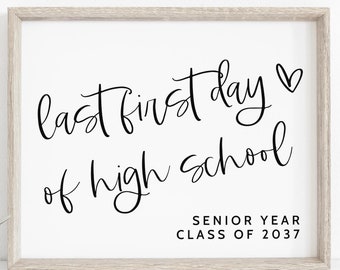 last first day
of high school
SENIOR YEAR
CLASS OF 2037